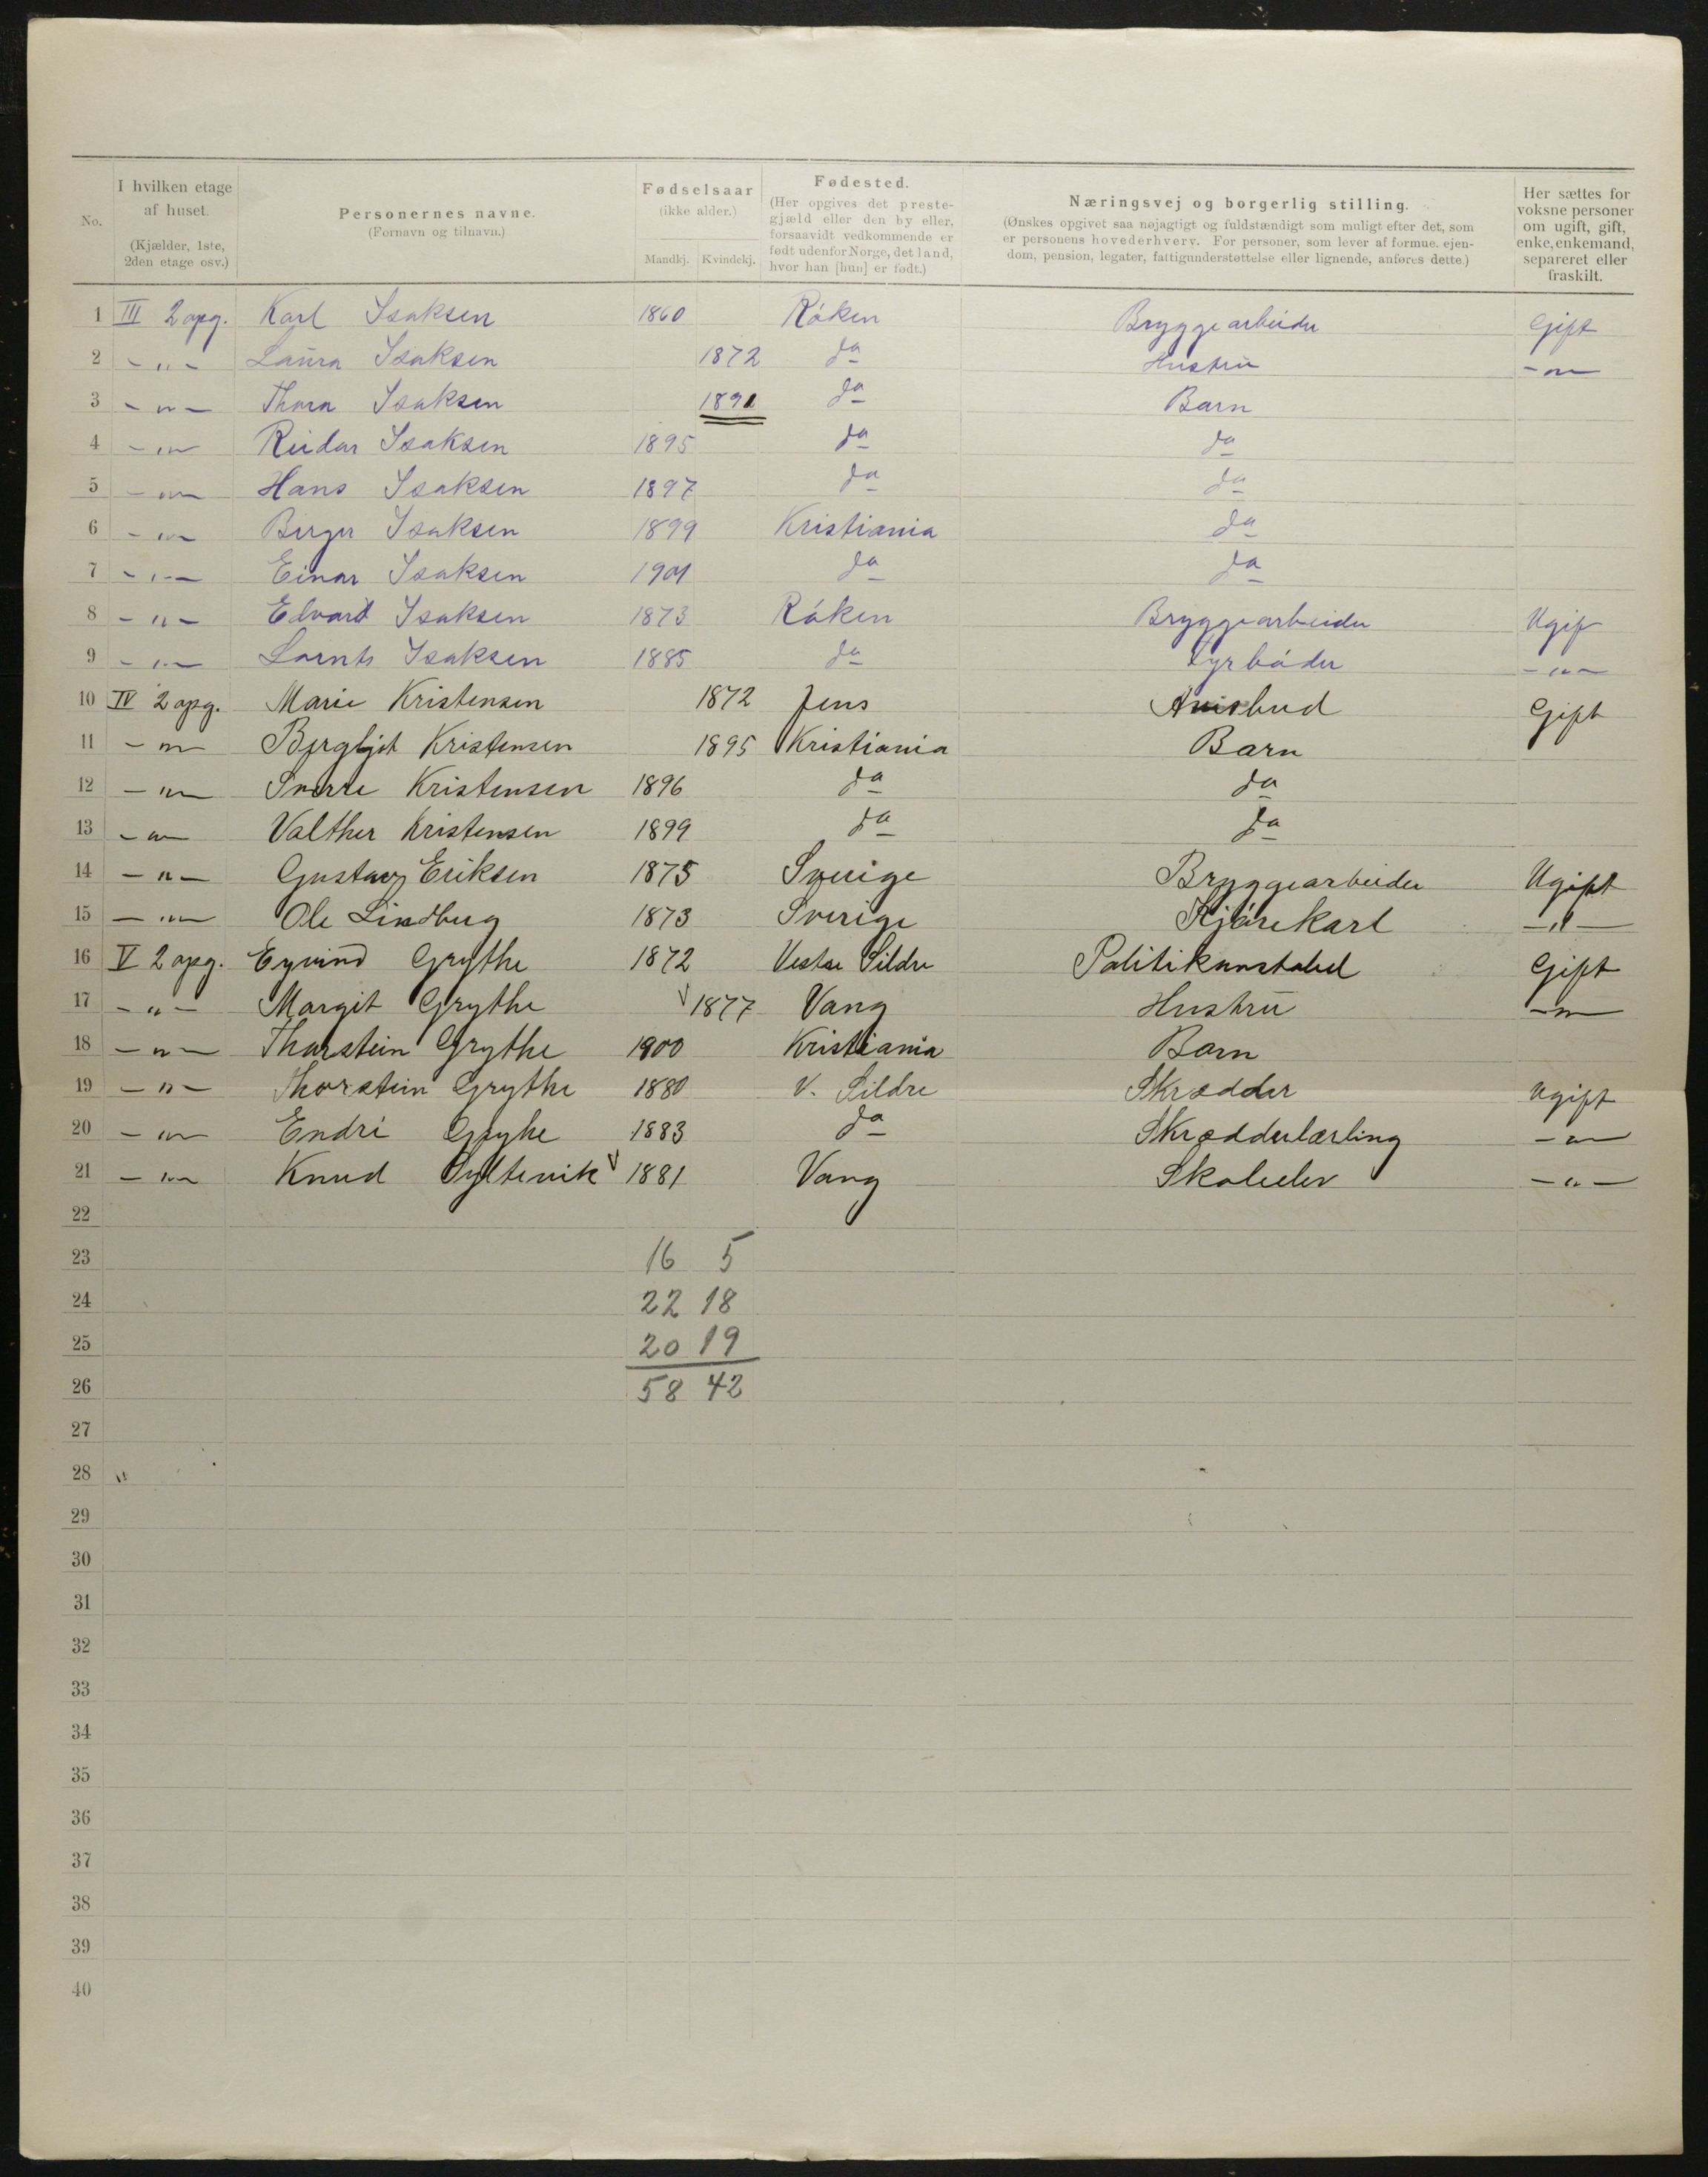 No. | I hvilken etage af huset. (Kjælder, 1ste, 2den etage osv.) | Personernes navne. (Fornavn og tilnavn.) | Fødselsaar (ikke alder.) Mandkj. Kvindekj. | Fødested. (Her opgives det prestegjæld eller den by eller, forsaavidt vedkommende er født udenfor Norge, det land, hvor han [hun] er født.) | Næringsvej og borgerlig stilling. (Ønskes opgivet saa nøjagtigt og fuldstændigt som muligt efter det, som er personens hovederhverv. For personer, som lever af formue, ejendom, pension, legater, fattigunderstøttelse eller lignende, anføres dette.) | Her sættes for voksne personer om ugift, gift, enke, enkemand, separeret eller fraskilt.
1 III 2 opg. Karl Isaksen 1860 Röken Bryggearbeider Gift
2 - " - Laura Isaksen 1872 do Hustru - " -
3 - " - Thora Isaksen 1891 do Barn
4 - " - Reidar Isaksen 1895 do do
5 - " - Hans Isaksen 1897 do do
6 - " - Birger Isaksen 1899 Kristiania do
7 - " - Einar Isaksen 1901 do do
8 - " - Edvard Isaksen 1873 Röken Bryggearbeider Ugif
9 - " - Lornts Isaksen 1885 do Fyrböder - " -
10 IV 2 opg. Marie Kristensen 1872 Jens Avisbud Gift
11 - " - Bergljot Kristensen 1895 Kristiania Barn
12 - " - Sverre Kristensen 1896 do do
13 - " - Valther Kristensen 1899 do do
14 - " - Gustav Eriksen 1875 Sverige Bryggearbeider Ugift
15 - " - Ole Lindberg 1873 Sverige Kjörekarl - " -
16 V 2 opg. Eyvind Grythe 1872 Vestre Slidre Politikonstabel Gift
17 - " - Margit Grythe 1877 Vang Hustru - " -
18 - " - Thorstein Grythe 1900 Kristiania Barn
19 - " - Thorstein Grythe 1880 V. Slidre Skrædder ugift
20 - " - Endre Grythe 1883 do Skrædderlærling - " -
21 - " - Knud 1881 Vang Skoleelev - " -
22
23 16 5
24 22 18
25 20 19
26 58 42
27
28
29
30
31
32
33
34
35
36
37
38
39
40